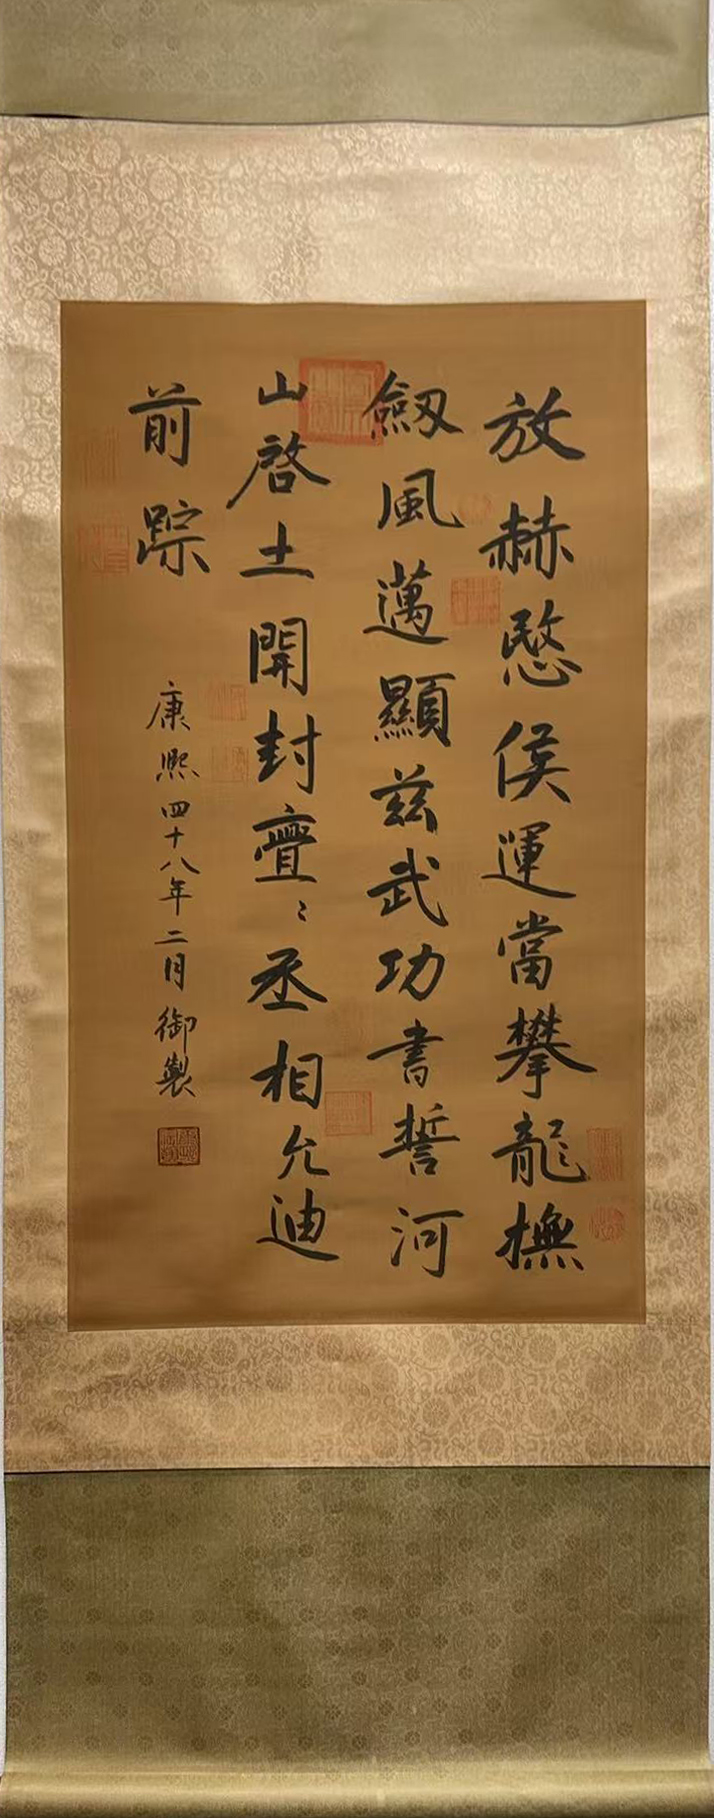 放赫愍侯運當攀龍撫
劔風邁顯茲武功書誓河
山啓土開封亹〻丞相允迪
前踪
康熙四十八年二月御製